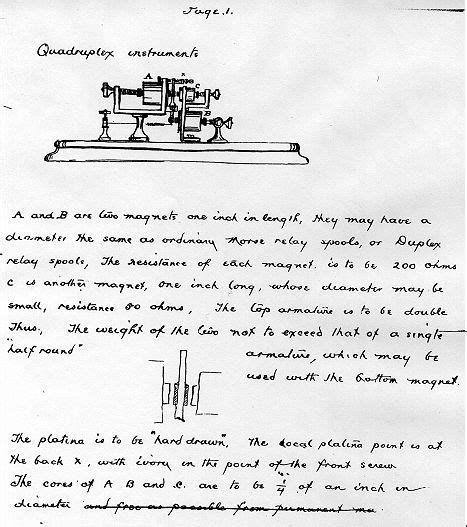 Page. 1.
Quadruplex instruments
A
x
C
B
A and B are two magnets one inch in length, they may have a
diameter the same as ordinary morse relay spools, or Duplex
relay spools, The resistance of each magnet. is to be 200 ohms
C is another magnet, one inch long, whose diameter may be
small, resistance 80 ohms, The top armature is to be double
Thus, The weight of the two not to exceed that of a single
"half round" armature, which may be
used with the bottom magnet.
The platina is to be "hard drawn", The local platina point is at
the back X, with ivory in the point of the front screw
The cores of A B and C. are to be 1/4 of an inch in
diameter and free as possible from permanent ma